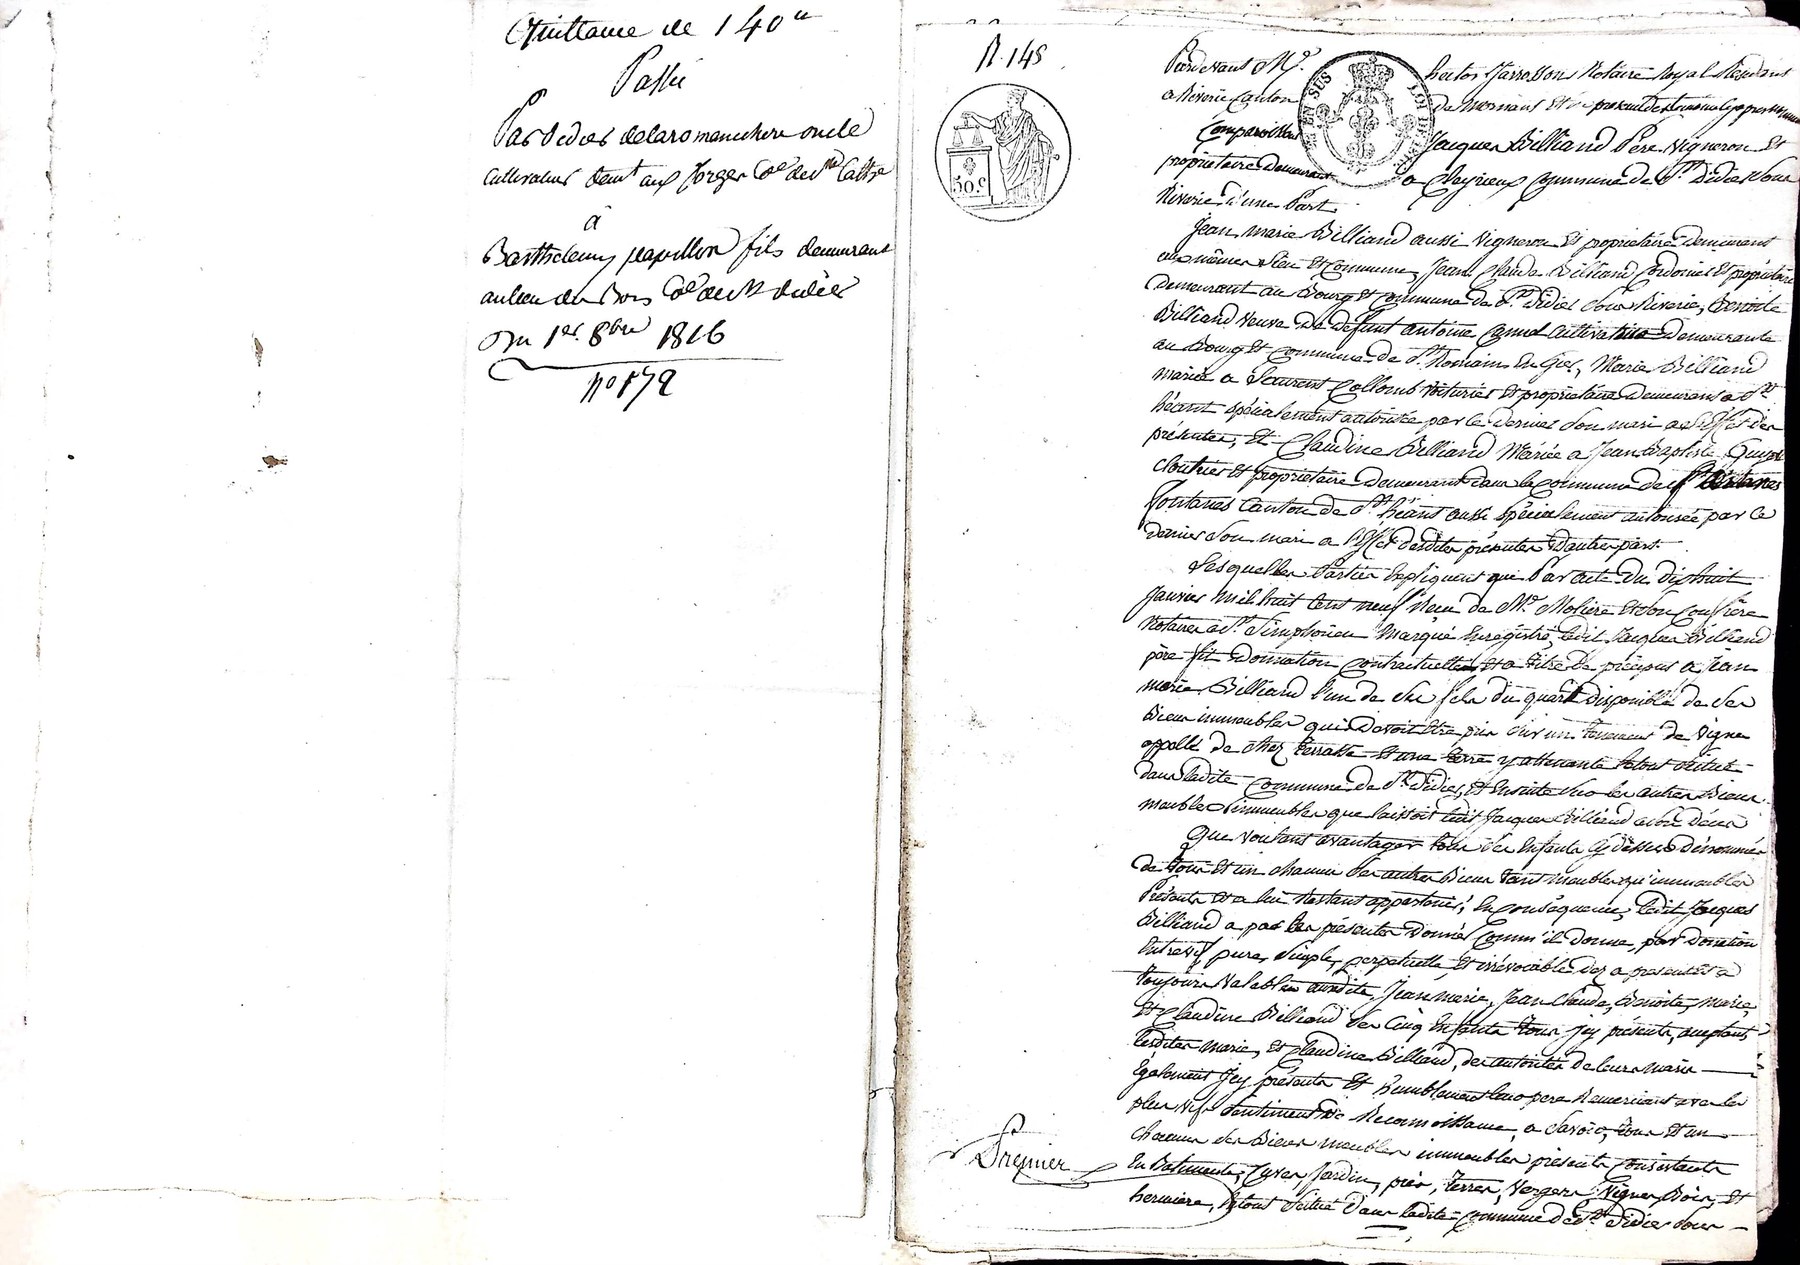 Quittance de 140ll
Passé
Par Didier delaromanchere oncle
cultivateur demt aux forges Cne de Ste Catne
à
Barthelemy papillon fils demeurant
au lieu du Bois Cne de St didier
Du 1er 8bre 1816
no 172
N. 145
50 c
EN SUS
LOI DE
Pardevant Me. hector Jarrosson Notaire Royal Residant
a Riverie Canton de Mornant Et en presence des temoins cy apres nommés
Comparoissent Jacques Billiand Père vigneron Et
propriétaire demeurant a Cheyrieux Commune de St. Didier sous
Riverie d'une Part
Jean marie Billiand aussi vigneron Et proprietaire demeurant
aux mêmes lieu et Commune, Jean Claude Billiand Cordonnier Et propriétaire
demeurant au Bourg Et Commune de St. Didier sous Riverie, Benoite
Billiand veuve de defunt antoine Camel cultivatrice demeurante
au Bourg Et Commune de St. Romain en Gier, Marie Billiand
mariée a Laurent Collomb voiturier Et propriétaire demeurant a St.
héant spécialement autorisée par ce dernier son mari a l'Effet des
présentes, Et Claudine Billiand Mariée a Jean Baptiste
cloutier Et propriétaire demeurant dans la Commune de
fontanes Canton de St. héant aussi spécialement autorisée par ce
dernier son mari a l'Effet desdites présentes d'autre part.
Lesquelles Parties Expliquent que Par acte du dix huit
janvier mil huit cent neuf Reçu de Me. Molière et son Confrère
Notaires a St. Simphorien Marqué Enregistré, ledit Jacques Billiand
père fit donnation Contractuelle et a titre de préciput a Jean
marie Billiand l'un de ses fils du quart disponible de ses
Biens immeubles qui devoit Etre pris sur un tenement de vigne
appellé de chez terrasse et une terre y attenante le tout situé
dans ladite Commune de St. Didier, et Ensuite sur les autres Biens
meubles immeubles que laissoit ledit Jacques Billiand a son décès
Que voulant avantager tous ses Enfants cy dessus dénommés
de tous Et un chacun ses autres Biens tant meubles qu'immeubles
Présents et a lui Restant appartenir; En Conséquence, ledit Jacques
Billiand a par les présentes donné Comm'il donne, par donation
Entrevif pure, simple, perpetuelle Et irrévocable dez a présent et a
toujours valable auxdits, Jean marie, Jean Claude, Benoite, marie,
Et Claudine Billiand ses Cinq Enfants tous jcy présents, acceptants,
lesdites marie, Et Claudine Billiand, des autorités de leurs maris
Egalement jcy présents Et humblement leur pere Remerciant avec les
plus vifs sentiments de Reconnoissance, a Savoir, tous Et un
chacun ses Biens meubles immeubles présents Consistants
En Batiments, Cuves, Jardin, près, terres, vergers, vignes, Bois, Et
hermière, le tout situé dans ladite Commune de St. Didier sous
Premier